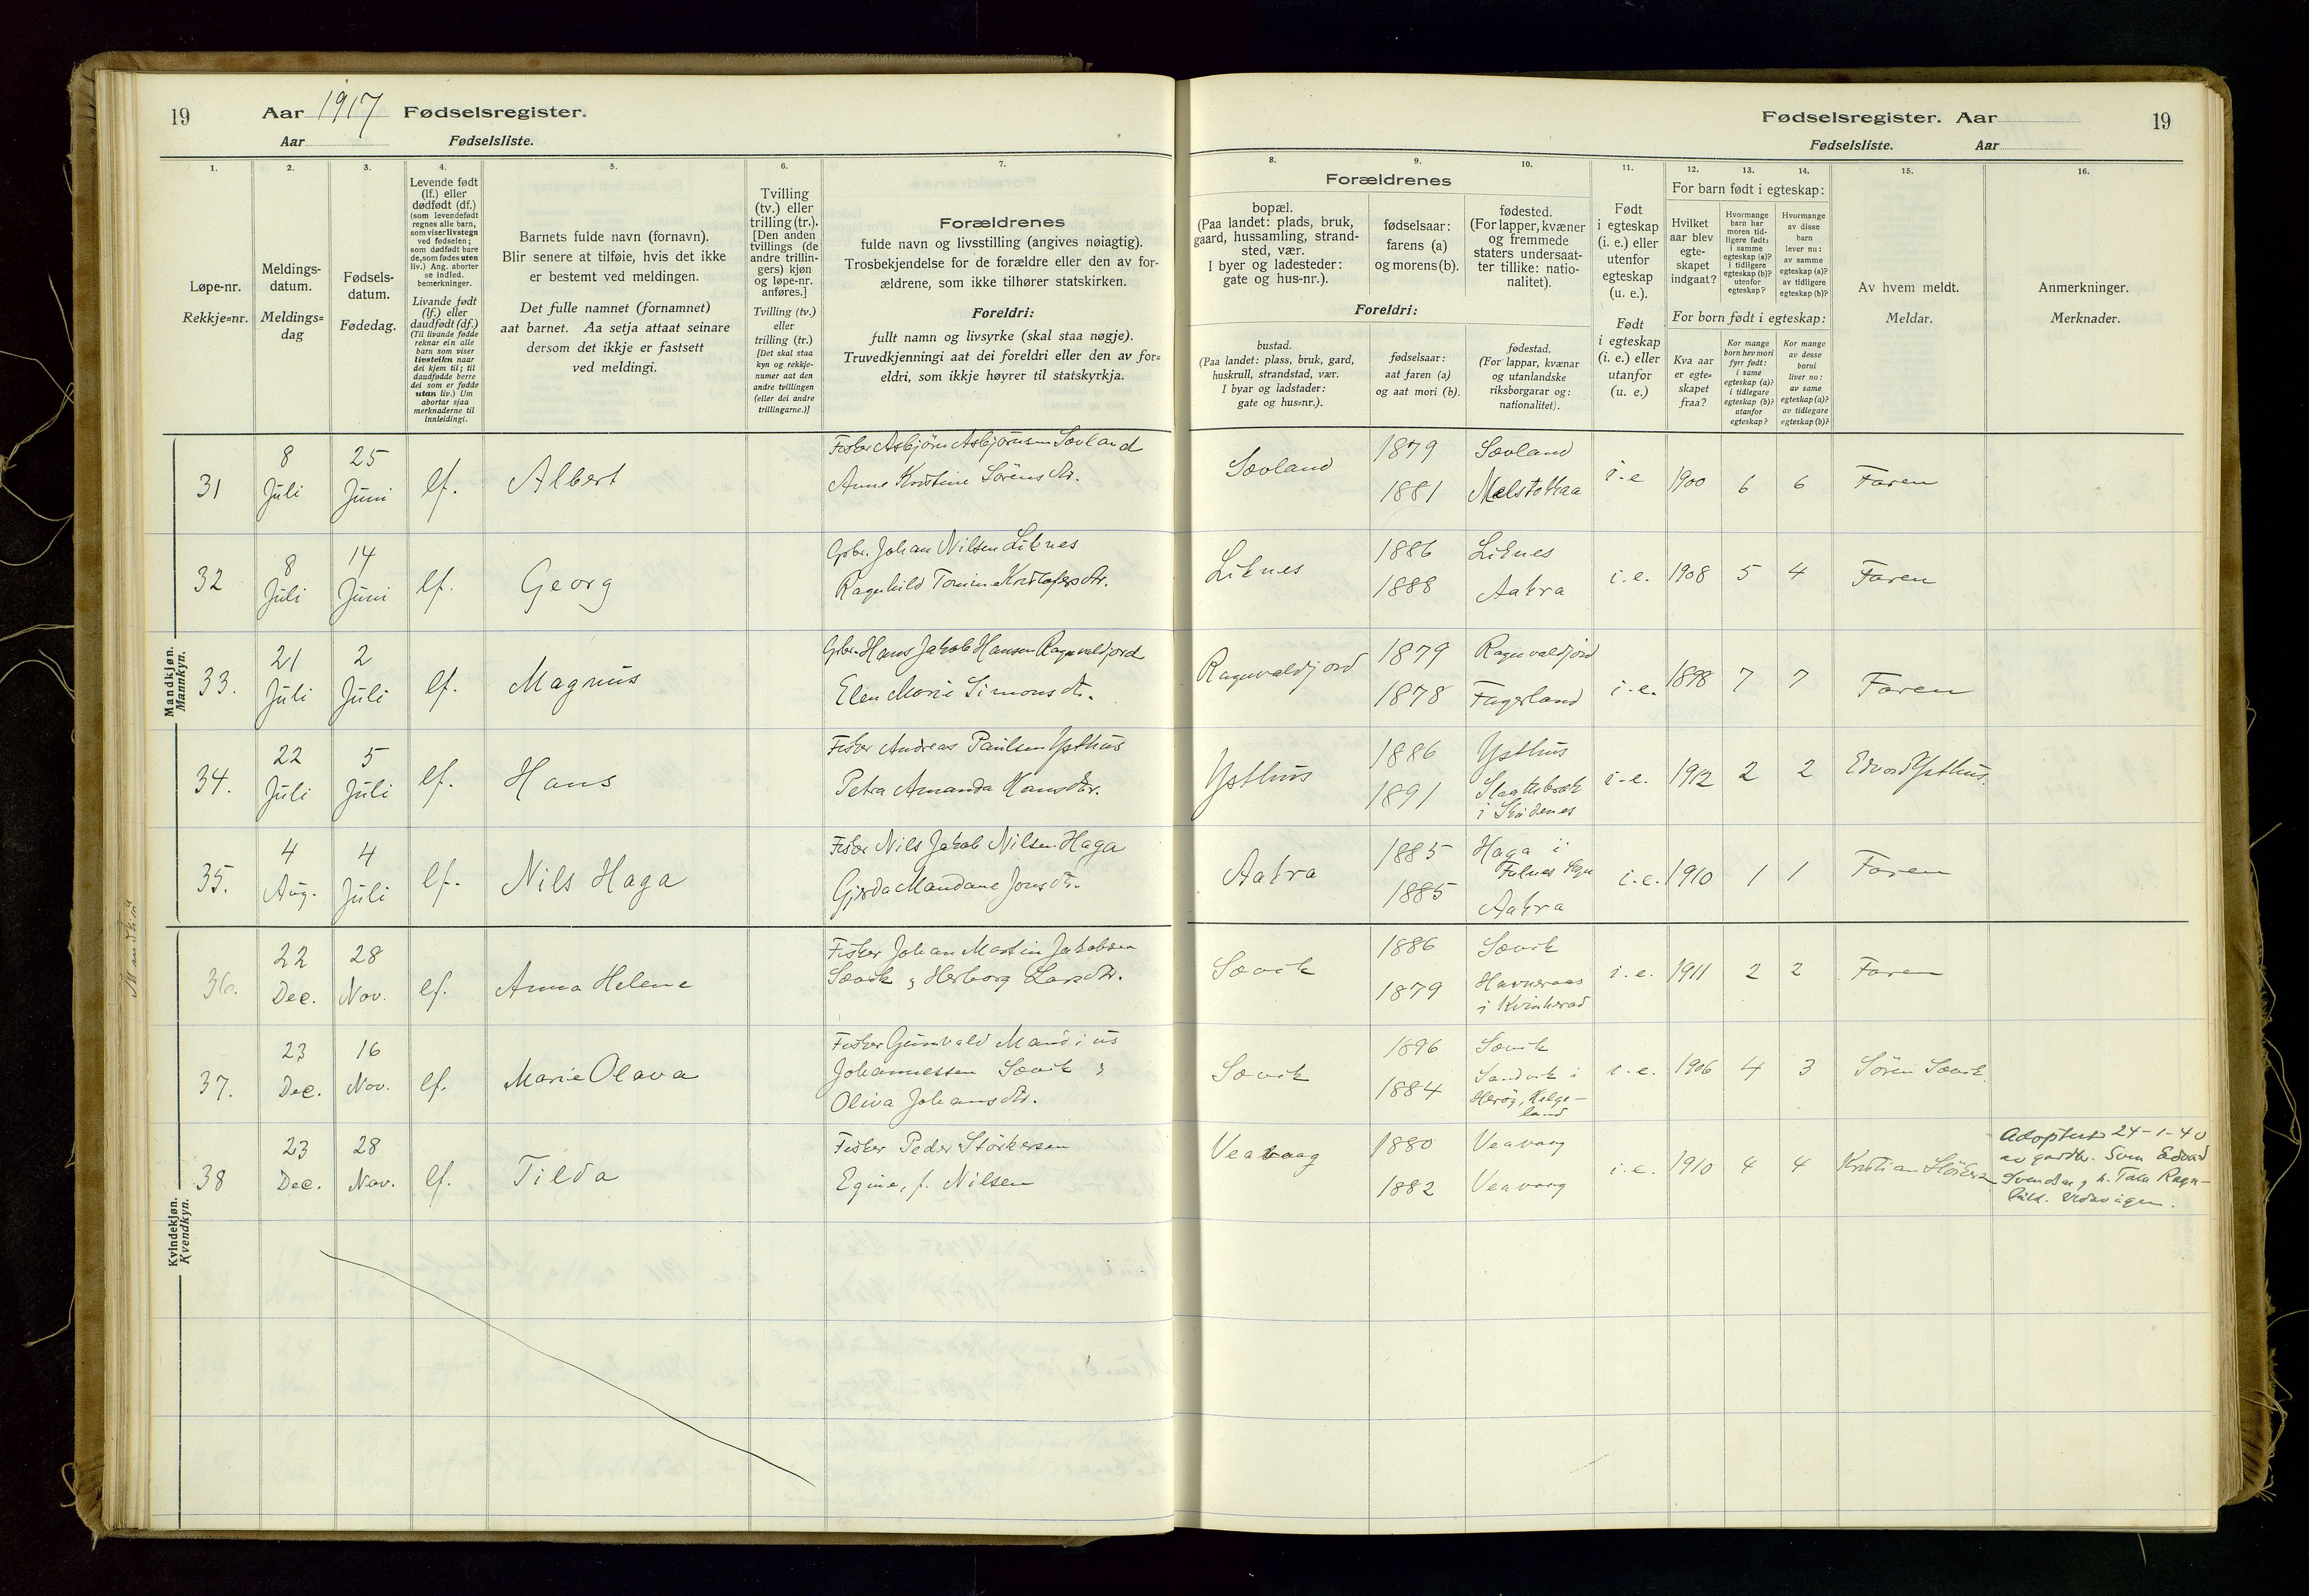 19 Aar 1917 Fødselsregister.
Aar Fødselsliste.
Fødselsregister. Aar 19
Fødselsliste. Aar
1. 2. 3. 4. 5. 6. 7. 8. 9. 10. 11. 12. 13. 14. 15. 16.
Løpe-nr.
Rekkje=nr.
Meldings-
datum.
Meldings=
dag
Fødsels-
datum.
Fødedag.
Levende født
(lf.) eller
dødfødt (df.)
(som levendefødt
regnes alle barn,
som viser livstegn
ved fødselen;
som dødfødt bare
de, som fødes uten
liv.) Ang. aborter
se indled.
bemerkninger.
Livande født
(lf.) eller
daudfødt (df.)
(Til livande fødde
reknar ein alle
barn som viser
livsteikn naar
dei kjem til; til
daudfødde berre
dei som er fødde
utan liv.) Um
abortar sjaa
merknaderne til
innleidingi.
Barnets fulde navn (fornavn).
Blir senere at tilføie, hvis det ikke
er bestemt ved meldingen.
Det fulle namnet (fornamnet)
aat barnet. Aa setja attaat seinare
dersom det ikkje er fastsett
ved meldingi.
Tvilling
(tv.) eller
trilling (tr.).
[Den anden
tvillings (de
andre trillin-
gers) kjøn
og løpe-nr.
anføres.]
Tvilling (tv.)
eller
trilling (tr.)
[Det skal staa
kyn og rekkje-
numer aat den
andre tvillingen
(eller dei andre
trillingarne.)]
Forældrenes
fulde navn og livsstilling (angives nøiagtig).
Trosbekjendelse for de forældre eller den av for-
ældrene, som ikke tilhører statskirken.
Foreldri:
fullt namn og livsyrke (skal staa nøgje).
Truvedkjenningi aat dei foreldri eller den av for=
eldri, som ikkje høyrer til statskyrkja.
Forældrenes
bopæl.
(Paa landet: plads, bruk,
gaard, hussamling, strand-
sted, vær.
I byer og ladesteder:
gate og hus-nr.).
fødselsaar:
farens (a)
og morens (b).
fødested.
(For lapper, kvæner
og fremmede
staters undersaat-
ter tillike: natio-
nalitet).
Foreldri:
bustad.
(Paa landet: plass, bruk, gard,
huskrull, strandstad, vær.
I byar og ladstader:
gate og hus=nr.).
fødselsaar:
aat faren (a)
og aat mori (b).
fødestad.
(For lappar, kvænar
og utanlandske
riksborgarar og:
nationalitet).
Født
i egteskap
(i. e.) eller
utenfor
egteskap
(u. e.).
Født
i egteskap
(i. e.) eller
utanfor
(u. e.)
For barn født i egteskap:
Hvilket
aar blev
egte-
skapet
indgaat?
Hvormange
barn har
moren tid-
ligere født:
i samme
egteskap (a)?
i tidligere
egteskap (b)?
utenfor
egteskap?
Hvormange
av disse
barn
lever nu:
av samme
egteskap (a)?
av tidligere
egteskap (b)?
For born født i egteskap:
Kva aar
er egte=
skapet
fraa?
Kor mange
born hev mori
fyrr født:
i same
egteskap (a)?
i tidlegare
egteskap (b)?
utanfor
egteskap?
Kor mange
av desse
borni
liver no:
av same
egteskap (a)?
av tidlegare
egteskap (b)?
Av hvem meldt.
Meldar.
Anmerkninger.
Merknader.
Mandkjøn.
Mannkyn.
31 8 Juli 25 Juni lf. Albert
Fisker Asbjörn Asbjörnsen Sævland
Anne Kristine Sörensdtr.
Sævland 1879 Sævland
1881 Melstokkaa
i-e 1900 6 6 Faren
32 8 Juli 14 Juni lf. Georg
Gbr. Johan Nilsen Liknes
Ragnhild Tomine Kristofersdtr.
Liknes 1886 Liknes
1888 Aakra
i.e. 1908 5 4 Faren
33. 21 Juli 2 Juli lf. Magnus
Gbr. Hans Jakob Hansen Ragnvaldjord
Elen Marie Simonsdtr.
Ragnvaldjord 1879 Ragnvaldjord
1878 Fugerland
i.e. 1898 7 7 Faren
34. 22 Juli 5 Juli lf. Hans
Fisker Andreas Paulsen Ysthus
Petra Amanda Hansdtr.
Ysthus 1886 Ysthus
1891
i Skudenes
i-e. 1912 2 2 Edvard Ysthus.
35. 4 Aug. 4 Juli lf. Nils Haga
Fisker Nils Jakob Nilsen Haga
Gjerda Mandane Jonsdtr.
Aakra 1885 Haga i
1885 Aakra
i.e. 1910 1 1 Faren
Kvindekjøn.
Kvendkyn.
36. 22 Dec. 28 Nov. lf. Anna Helene
Fisker Johan Martin Jakobsen
Sævik & Herborg Larsdtr.
Sævik 1886 Sævik
1879 Havneraas
i Kvinherad
i.e. 1911 2 2 Faren
37. 23 Dec. 16 Nov. lf. Marie Olava
Fisker Gunvald Mandius
Johannessen Sævik &
Oliva Johansdtr.
Sævik 1896 Sævik
1884 Sandvik i
Herøy, Helge-
land
i.e. 1906 4 3 Sören Sævik.
38 23 Dec. 28 Nov. lf. Tilda
Fisker Peder Störkersen
Egine, f. Nilsen
Veavaag 1880 Veavaag
1882 Veavaag
i.e. 1910 4 4 Kristian Störkersen
Adoptert 24-1-40
av gardbr. Sven Edvard
Svendsen & h. Tala Ragn-
hild. Vedavågen.